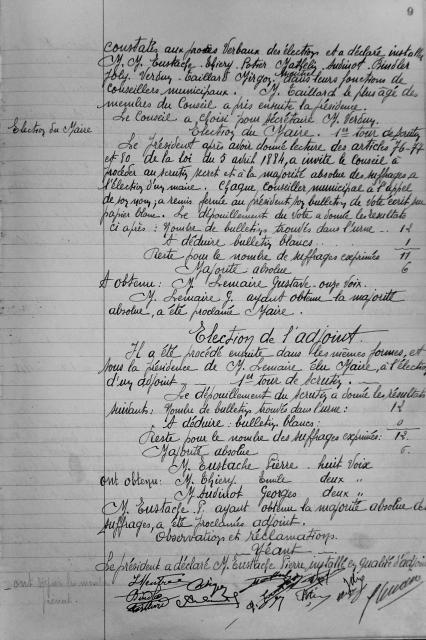 9
constatés aux procès Verbaux des élections et a déclaré installés
M. M. Eustache Thiery Potier Mathelin Aubinot Pindler
Joly Verduy Taillard Mirgon dans leurs fonctions de
conseillers municipaux. M. Taillard le plus âgé des
membres du Conseil a pris ensuite la présidence.
Le Conseil a choisi pour Secrétaire M. Verduy.
Election du Maire
Election du Maire. 1er tour de scrutin
Le Président après avoir donné lecture des articles 76-77
et 80 de la loi du 5 avril 1884, a invité le Conseil à
procéder au scrutin secret et à la majorité absolue des suffrages à
l'élection d'un maire. Chaque conseiller municipal à l'appel
de son nom, a remis fermé au président son bulletin de vote écrit sur
papier blanc. Le dépouillement du vote a donné les resultats
ci après: Nombre de bulletins trouvés dans l'urne .. 12
A déduire bulletins blancs .. 1
Reste pour le nombre de suffrages exprimés 11
Majorité absolue 6
A obtenu: M. Lemaire Gustave onze voix.
M. Lemaire G. ayant obtenu la majorité
absolue, a été proclamé Maire.
Election de l'adjoint.
Il a été procédé ensuite dans les mêmes formes, et
sous la présidence de M. Lemaire élu Maire, à l'élection
d'un adjoint 1er tour de Scrutin.
Le dépouillement du scrutin a donné les résultats
suivants: Nombre de bulletins trouvés dans l'urne: 12
A déduire: bulletins blancs: 0
Reste pour le nombre des suffrages exprimés: 12
Majorité absolue
M. Eustache Pierre huit Voix
ont obtenu: M. Thiery Emile deux "
M. Aubinot Georges deux "
M. Eustache P. ayant obtenu la majorité absolue des
suffrages, a été proclamé adjoint.
Observations et réclamations.
Néant
Le président a déclaré M. Eustache Pierre, installé en qualité d'adjoint